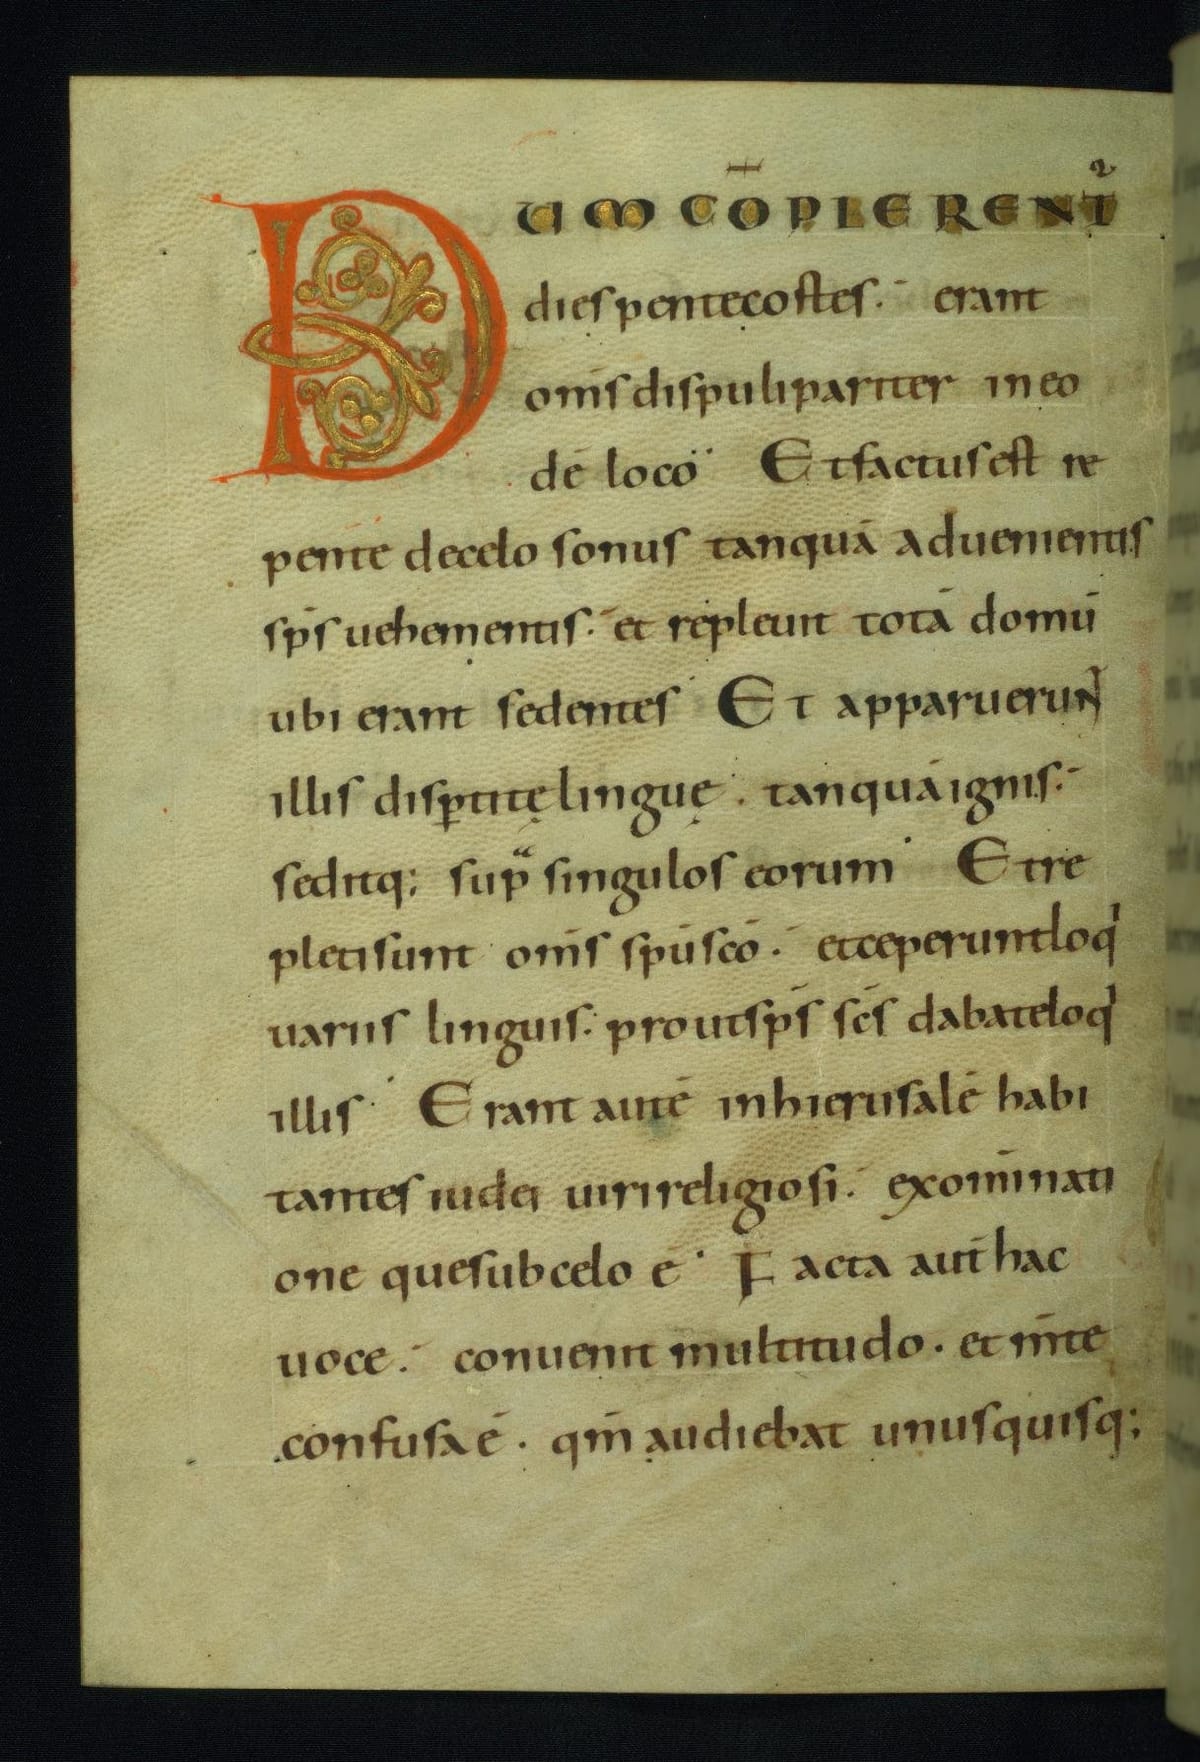 DUM CO̅PLERENT̅ᷣ
dies pentecostes. erant
om̅s dispuli pariter in eo
de̅ loco Et factus est re
pente de celo sonus tanqua̅ aduenientis
sp̅s uehementis. et repleuit tota̅ domu̅
ubi erant sedentes Et apparuerunt
illis disꝑtitę linguę. tanqua̅ ignis.
seditq; sup̅ singulos eorum Et re
pleti sunt om̅s sp̅u sc̅o. et ceperunt loq
uariis linguis. prout sp̅s sc̅s dabat eloq
illis Erant aute̅ in hierusale̅ habi
tantes iudei uiri religiosi. ex omni nati
one que sub celo e̅ Facta aut̅ hac
uoce. conuenit multitudo. et m̅te
confusa e̅. qm̅ audiebat unusquisq;